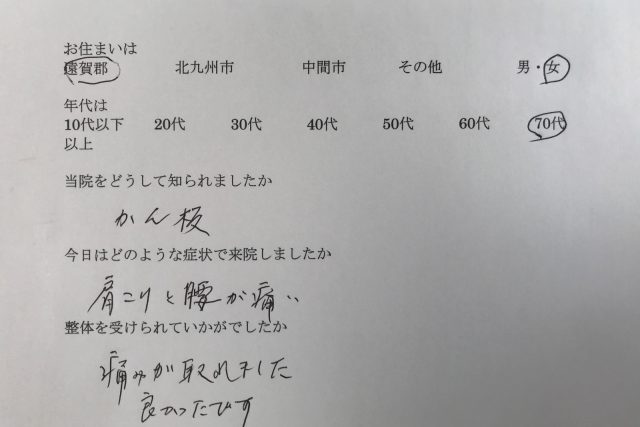 お住まいは
遠賀郡 北九州市 中間市 その他 男・女
年代は
10代以下 20代 30代 40代 50代 60代 70代
以上
当院をどうして知られましたか
かん板
今日はどのような症状で来院しましたか
肩こりと腰が痛い
整体を受けられていかがでしたか
痛みが取れました
良かったです